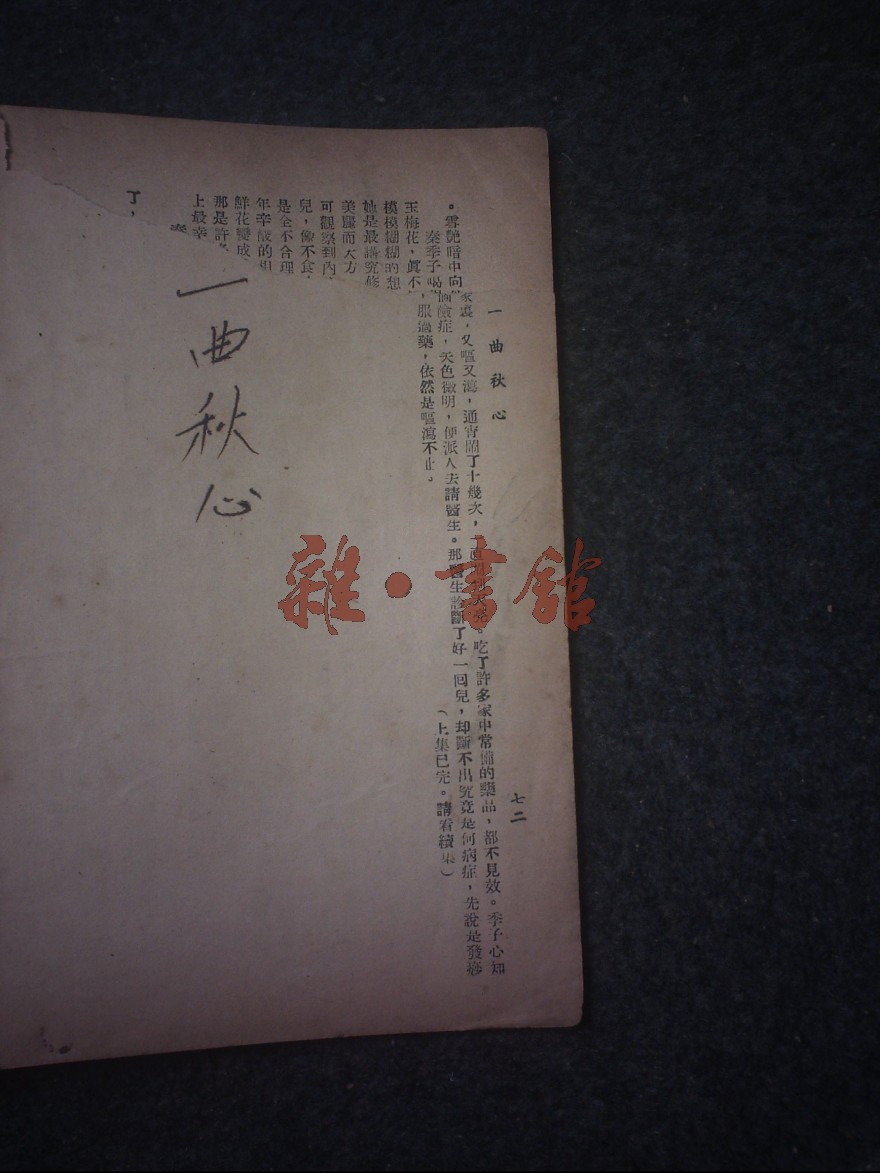 一曲秋心
七二
家裏，又嘔又瀉，通宵鬧了十幾次，一直鬧到天亮。吃了許多家中常備的藥品，都不見效。季子心知
個險症，天色微明，便派人去請醫生。那醫生診斷了好一回兒，却斷不出究竟是何病症，先說是發痧
，服過藥，依然是嘔瀉不止。
（上集已完。請看續集）
。雲艷暗中向
秦季子喝
玉梅花，眞不
模模糊糊的想
她是最講究修
美麗而大方
可觀察到內
兒，像不食
是全不合理
年辛酸的
鮮花變成
那是許
上最幸
了，
一曲秋心
雜·書館